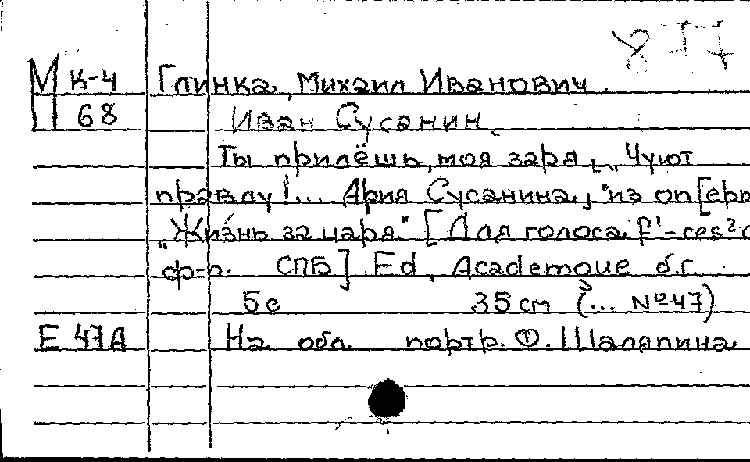 877
М К-4 Глинка, Михаил Иванович.
68 Иван Сусанин.
Ты придёшь, моя заря, „Чуют
правду!... Ария Сусанина," из оп[еры
„Жизнь за царя." [Для голоса f'-ces² с
ф-п. СПБ] Ed, Academoue б.г.
5с 35 см (... №47)
Е 47А На обл. портр. Ф. Шаляпина